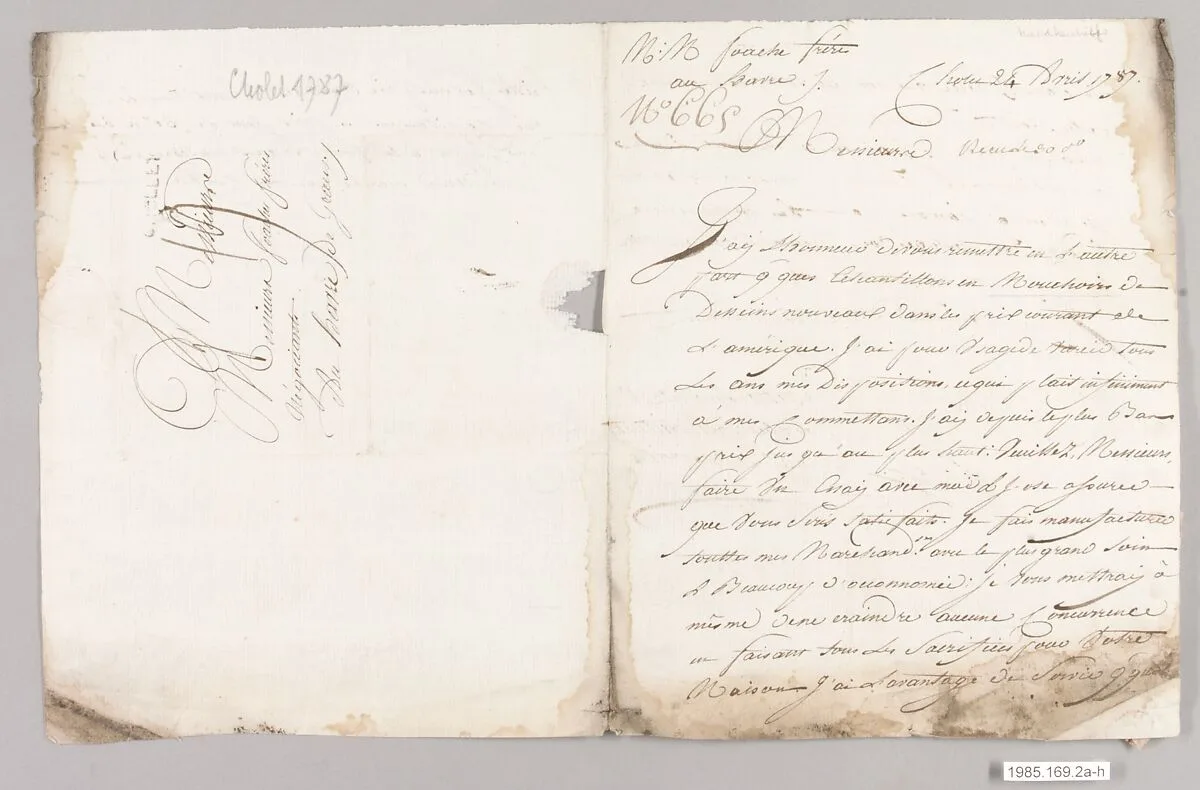 Cholet 1787
CHOLLET
Messieurs
Messieurs foache freres
Négociants
Du havre De Graces
M:M foache frére
au havre ./.
Cholet 24 Avril 1787.
N° 665
Messieurs. Recule 30 do
J'ay Lhonneur de vous remettre en L'autre
part q'ques Echantillons en Mouchoirs de
Desseins nouveaux dans les prix courant de
L'amérique. J'ai pour Usage de varié tous
Les ans mes Dispositions, ce qui plait infiniment
à mes Commettans. J'ay depuis le plus Bas
prix jusqu'au plus haut: Veuillez, Messieurs,
faire Un Essay avec moi & J'ose assurer
que Vous Serés Satisfaits. Je fais manufacturer
touttes mes Marchand.ses avec le plus grand Soin
& Beaucoup d'oeconnomie: je vous mettray à
même de ne craindre aucune Concurrence
en faisant tous les Sacrifices pour Votre
Maison J'ai L'avantage de Servir q'ques
1985.169.2a-h